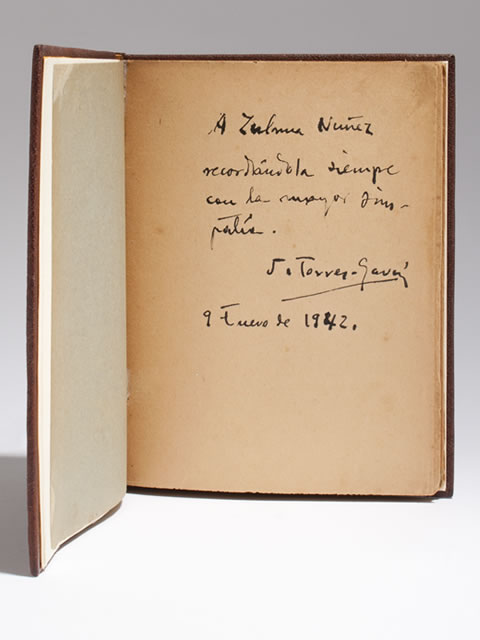 A Zulma Nuñez
recordándola siempre
con la mayor sim-
patía.
J. Torres-García
9 Enero de 1942.